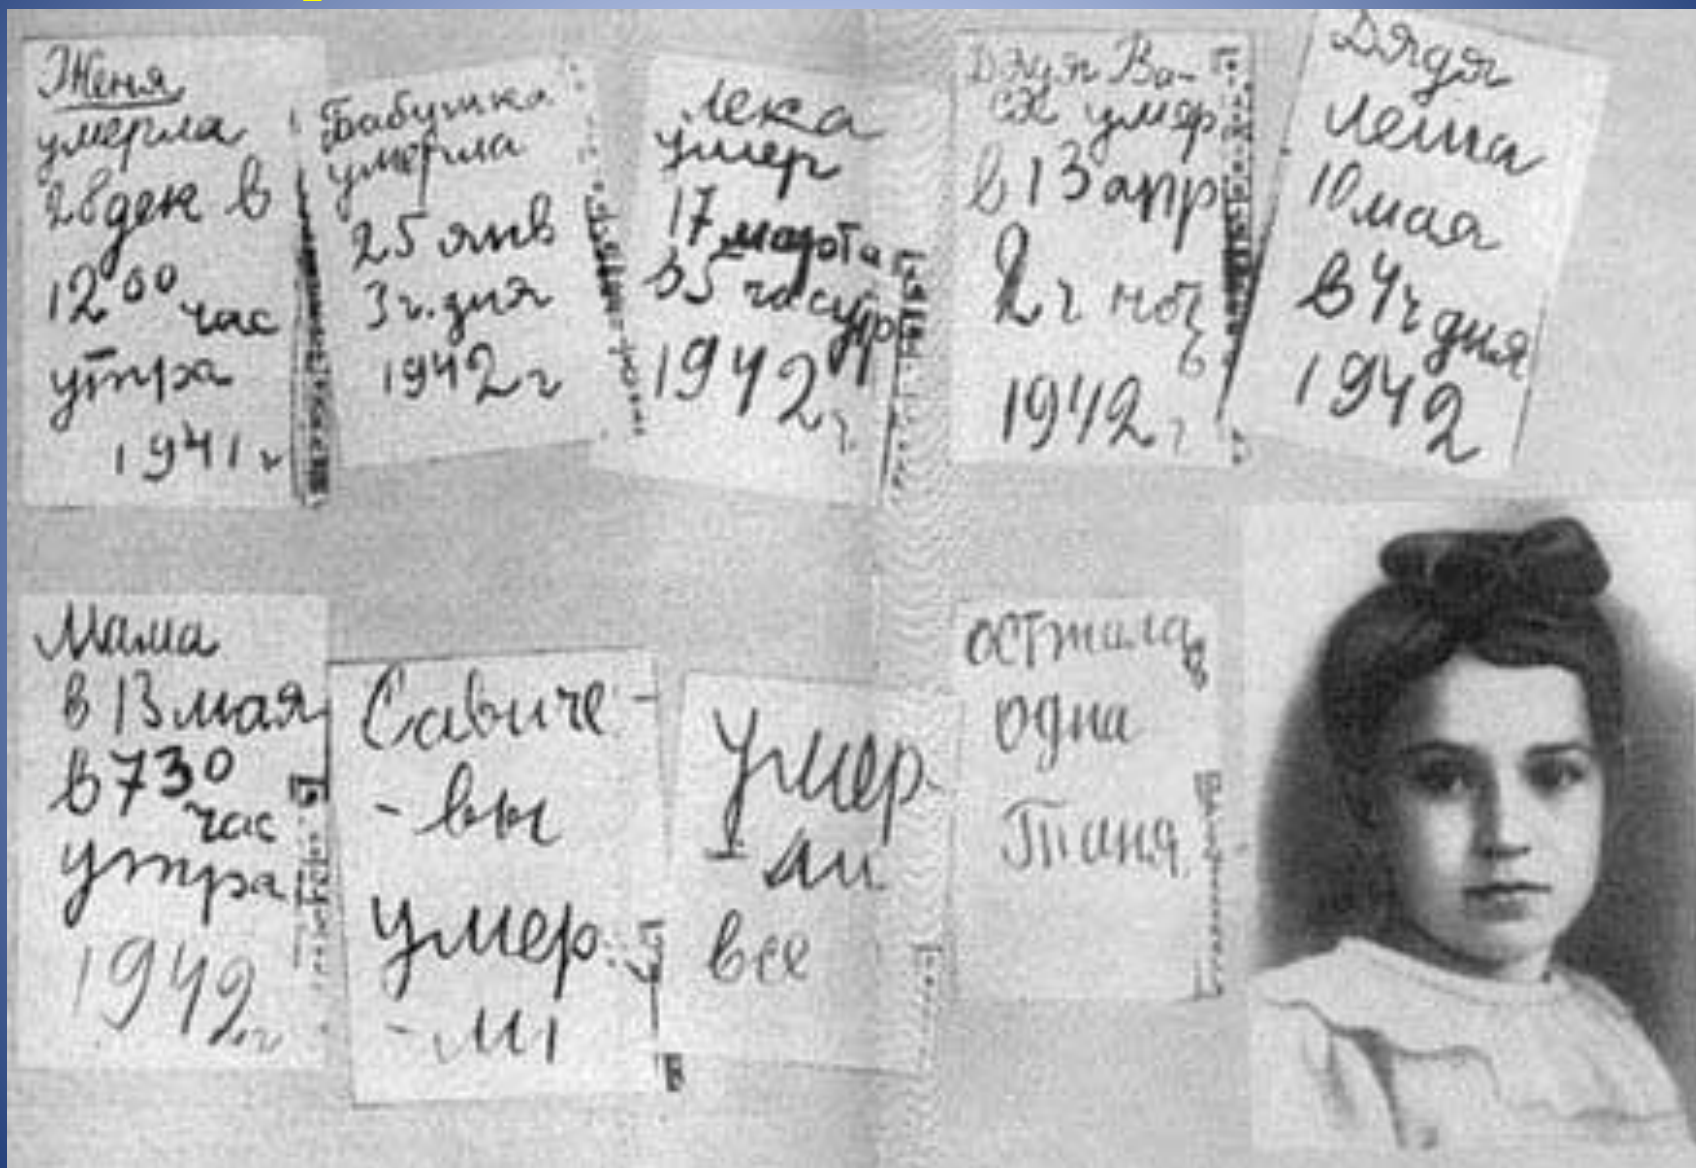 Женя
умерла
28 дек в
12 00 час
утра
1941 г
Бабушка
умерла
25 янв
3 ч. дня
1942 г
Лека
умер
17 марта
в 5 час утр
1942 г
Дядя Ва-
ся умер
в 13 апр
2 ч ноч
ь
1942 г
Дядя
Леша
10 мая
в 4 ч дня
1942
Мама
в 13 мая
в 730
час
утра
1942 г
Савиче-
-вы
умер
-ли
Умер
-ли
все
осталась
одна
Таня